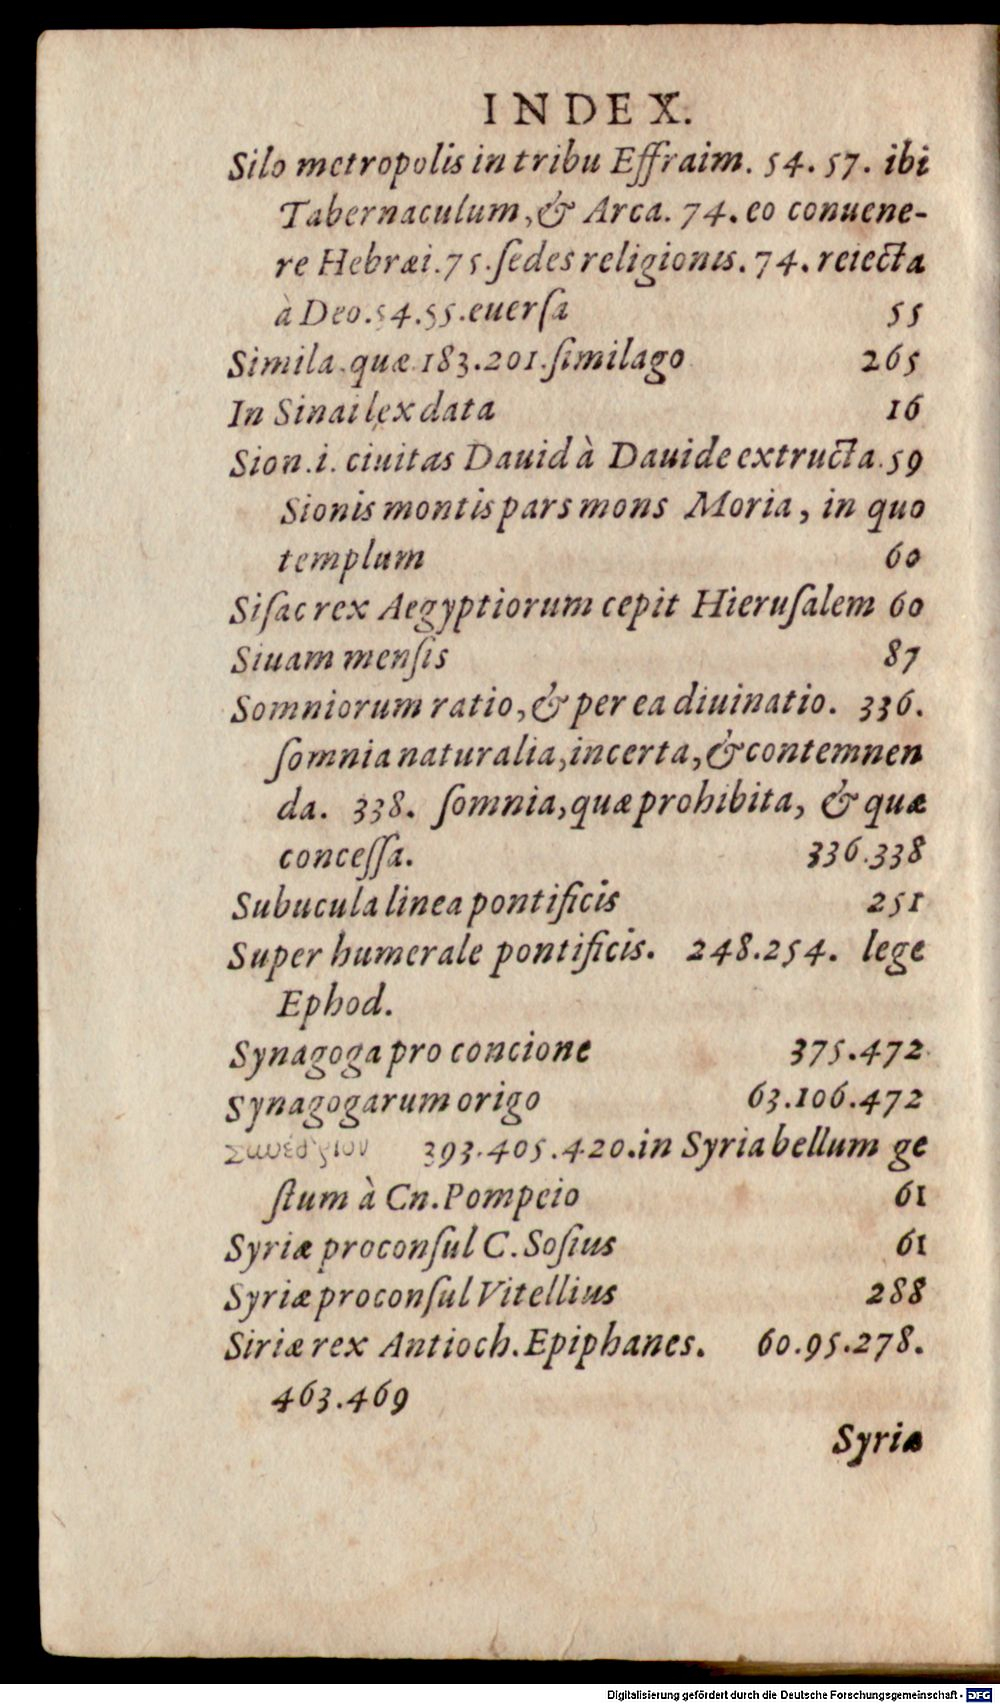 INDEX.
Silo metropolis in tribu Effraim. 54. 57. ibi
Tabernaculum, & Arca. 74. eo conuene-
re Hebræi. 75. ſedes religionis. 74. reiecta
à Deo. 54. 55. euerſa 55
Simila quæ 183. 201. ſimilago 265
In Sinai lex data 16
Sion. i. ciuitas Dauid à Dauide extructa. 59
Sionis montis pars mons Moria, in quo
templum 60
Siſac rex Aegyptiorum cepit Hieruſalem 60
Siuam menſis 87
Somniorum ratio, & per ea diuinatio. 336.
ſomnia naturalia, incerta, & contemnen
da. 338. ſomnia, quæ prohibita, & quæ
conceſſa. 336. 338
Subucula linea pontificis 251
Super humerale pontificis. 248. 254. lege
Ephod.
Synagoga pro concione 375. 472
Synagogarum origo 63. 106. 472
Συνέδριον 393. 405. 420. in Syria bellum ge
ſtum à Cn. Pompeio 61
Syriæ proconſul C. Soſius 61
Syriæ proconſul Vitellius 288
Siriæ rex Antioch. Epiphanes. 60. 95. 278.
463. 469
Syriæ
Digitalisierung gefördert durch die Deutsche Forschungsgemeinschaft - DFG